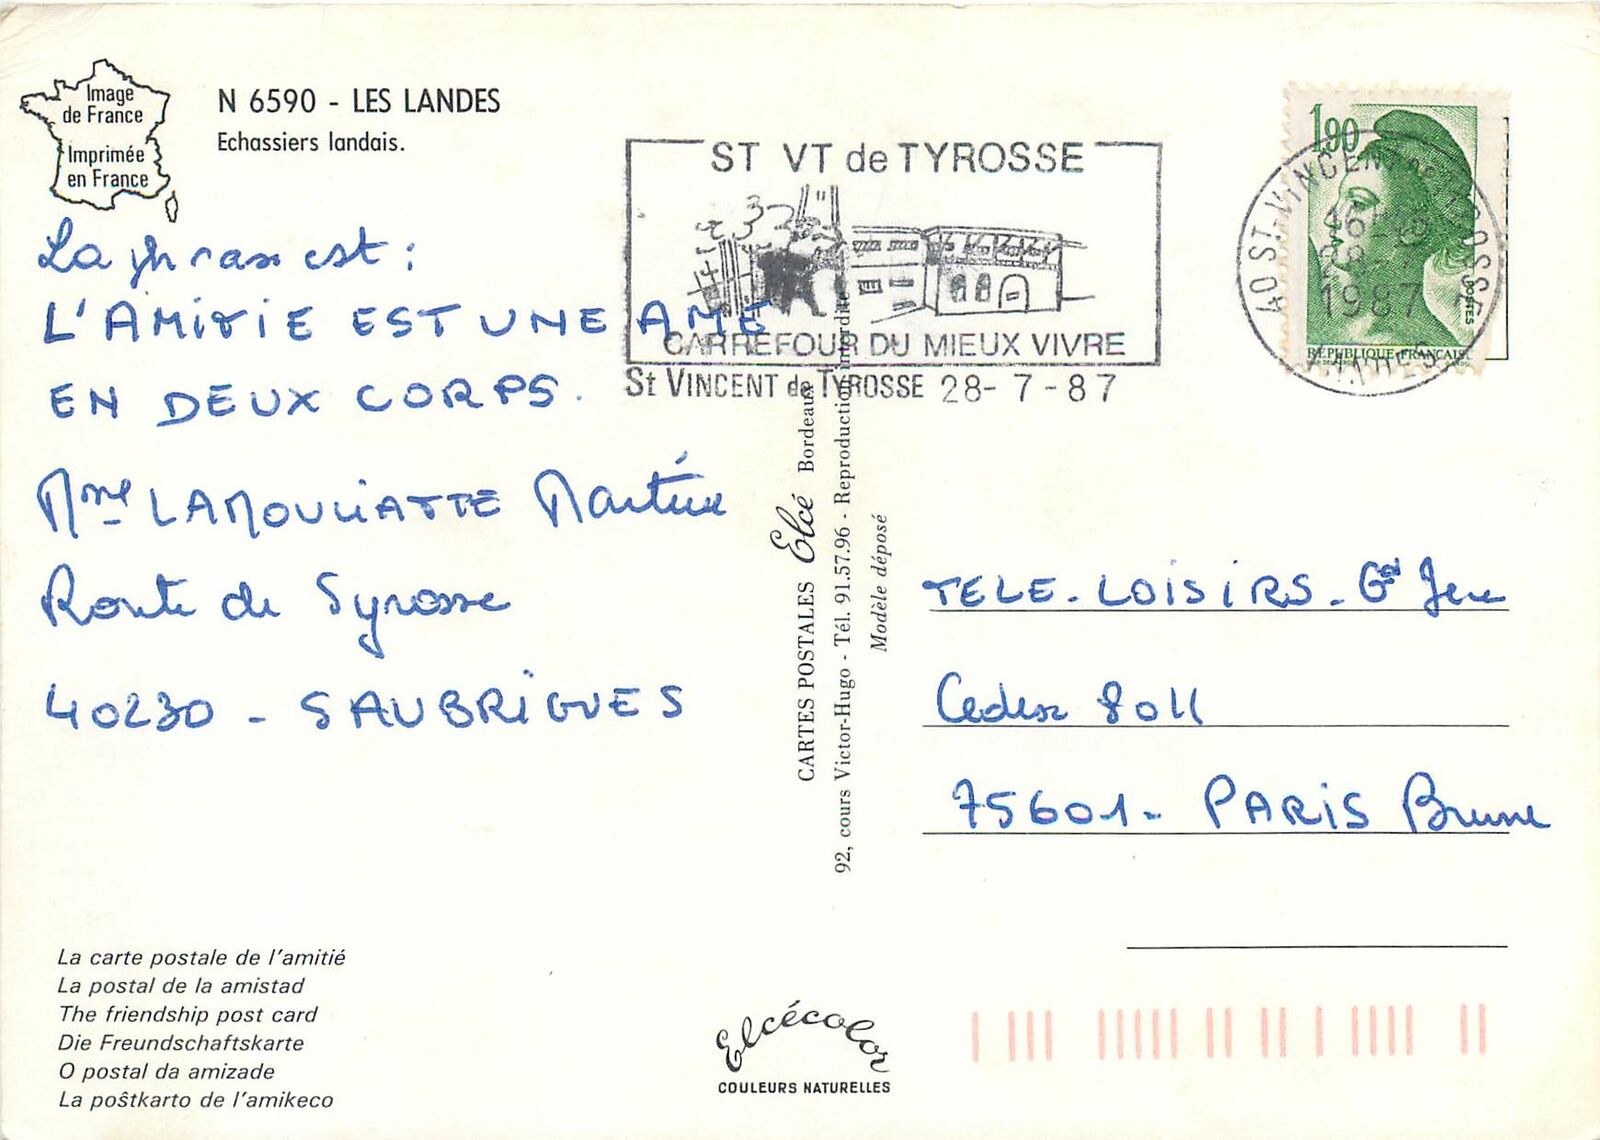 Image
de France
Imprimée
en France
N 6590 - LES LANDES
Echassiers landais.
La phrase est :
L'AMITIE EST UNE AME
EN DEUX CORPS.
Mme LAMOULIATTE Martine
Route de Tyrosse
40230 - SAUBRIGUES
La carte postale de l'amitié
La postal de la amistad
The friendship post card
Die Freundschaftskarte
O postal da amizade
La poŝtkarto de l'amikeco
ST VT de TYROSSE
CARREFOUR DU MIEUX VIVRE
St VINCENT de TYROSSE 28-7-87
CARTES POSTALES Elcé Bordeaux
92, cours Victor-Hugo - Tél. 91.57.96 - Reproduction interdite
Modèle déposé
Elcécolor
COULEURS NATURELLES
1,90
POSTES
REPUBLIQUE FRANÇAISE
40 ST-VINCENT DE TYROSSE
28-7
1987
LANDES
TELE-LOISIRS - Gd Jeu
Cedex 8011
75601 - PARIS Brune